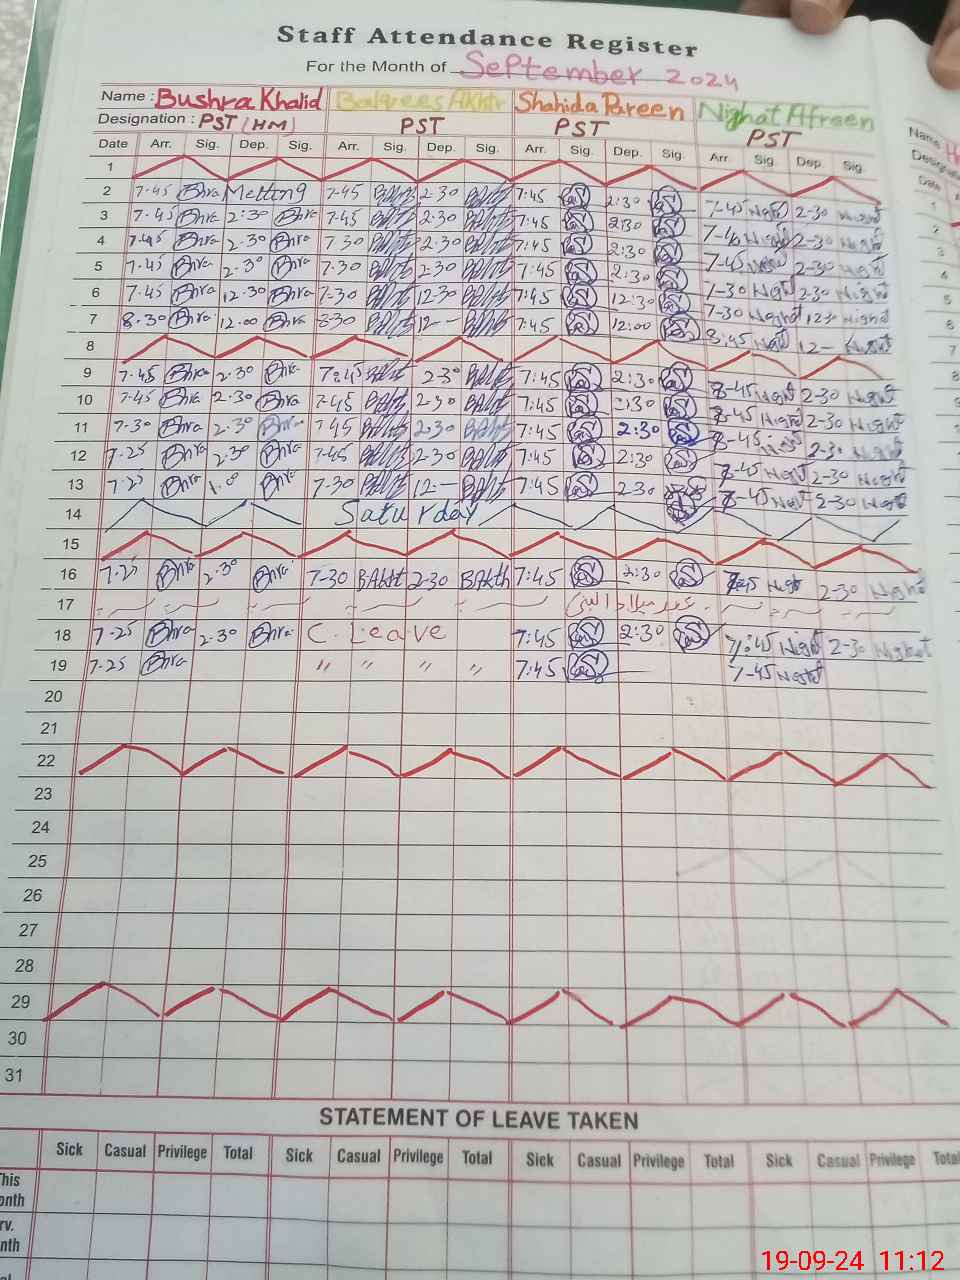 Staff Attendance Register
For the Month of September 2024
Name : Bushra Khalid Balqees Akhtr Shahida Pareen Nighat Afreen
Designation : PST (HM) PST PST PST
Date Arr. Sig. Dep. Sig. Arr. Sig. Dep. Sig. Arr. Sig. Dep. Sig. Arr. Sig. Dep. Sig.
1
2 7-45 Bhra Meeting 7-45 2-30 7:45 2:30 7-45 Night 2-30 Night
3 7-45 Bhra 2-30 Bhra 7-45 2-30 7:45 2:30 Night 2-30 Night
4 7-45 Bhra 2-30 Bhra 7-30 2-30 7:45 2:30 7-45 Night 2-30 Night
5 7-45 Bhra 2-30 Bhra 7-30 2-30 7:45 2:30 7-30 Night 2-30 Night
6 7-45 Bhra 12-30 Bhra 7-30 12-30 7:45 12:30 7-30 Night 12-30 Night
7 8-30 Bhra 12-00 Bhra 8-30 12- 7:45 12:00 Night 12- Night
8
9 7-45 Bhra 2-30 Bhra 7:45 2-30 7:45 2:30 8-45 Night 2-30 Night
10 7-45 Bhra 2-30 Bhra 7-45 2-30 7:45 2:30 8-45 Night 2-30 Night
11 7-30 Bhra 2-30 Bhra 7-45 2-30 7:45 2:30 8-45 Night 2-30 Night
12 7-25 Bhra 2-30 Bhra 7-45 2-30 7:45 2:30 8-45 Night 2-30 Night
13 7-25 Bhra 1-00 Bhra 7-30 12- 7:45 2:30 8-45 Night 2-30 Night
14 Saturday
15
16 7-25 Bhra 2-30 Bhra 7-30 BAkht 2-30 BAkth 7:45 2:30 Night 2-30 Night
17 عید میلاد النبی
18 7-25 Bhra 2-30 Bhra C. Leave 7:45 2:30 7:45 Night 2-30 Night
19 7-25 Bhra " " " " 7:45 7-45 Night
20
21
22
23
24
25
26
27
28
29
30
31
STATEMENT OF LEAVE TAKEN
Sick Casual Privilege Total Sick Casual Privilege Total Sick Casual Privilege Total Sick Casual Privilege Total
This
onth
rv.
nth
19-09-24 11:12